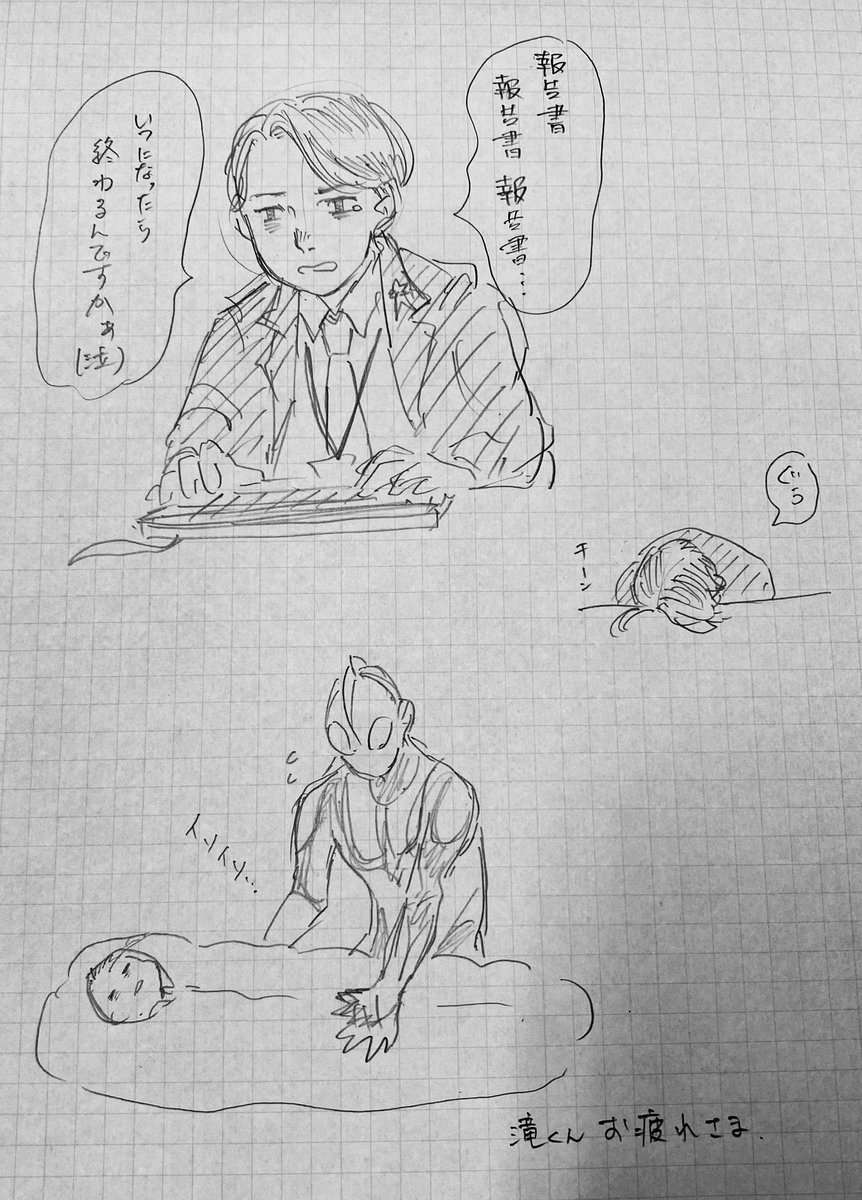 報告書
報告書 報告書…
いつになったら
終わるんですかぁ
(泣)
ぐぅ
チーン
イソイソ…
滝くん お疲れさま.